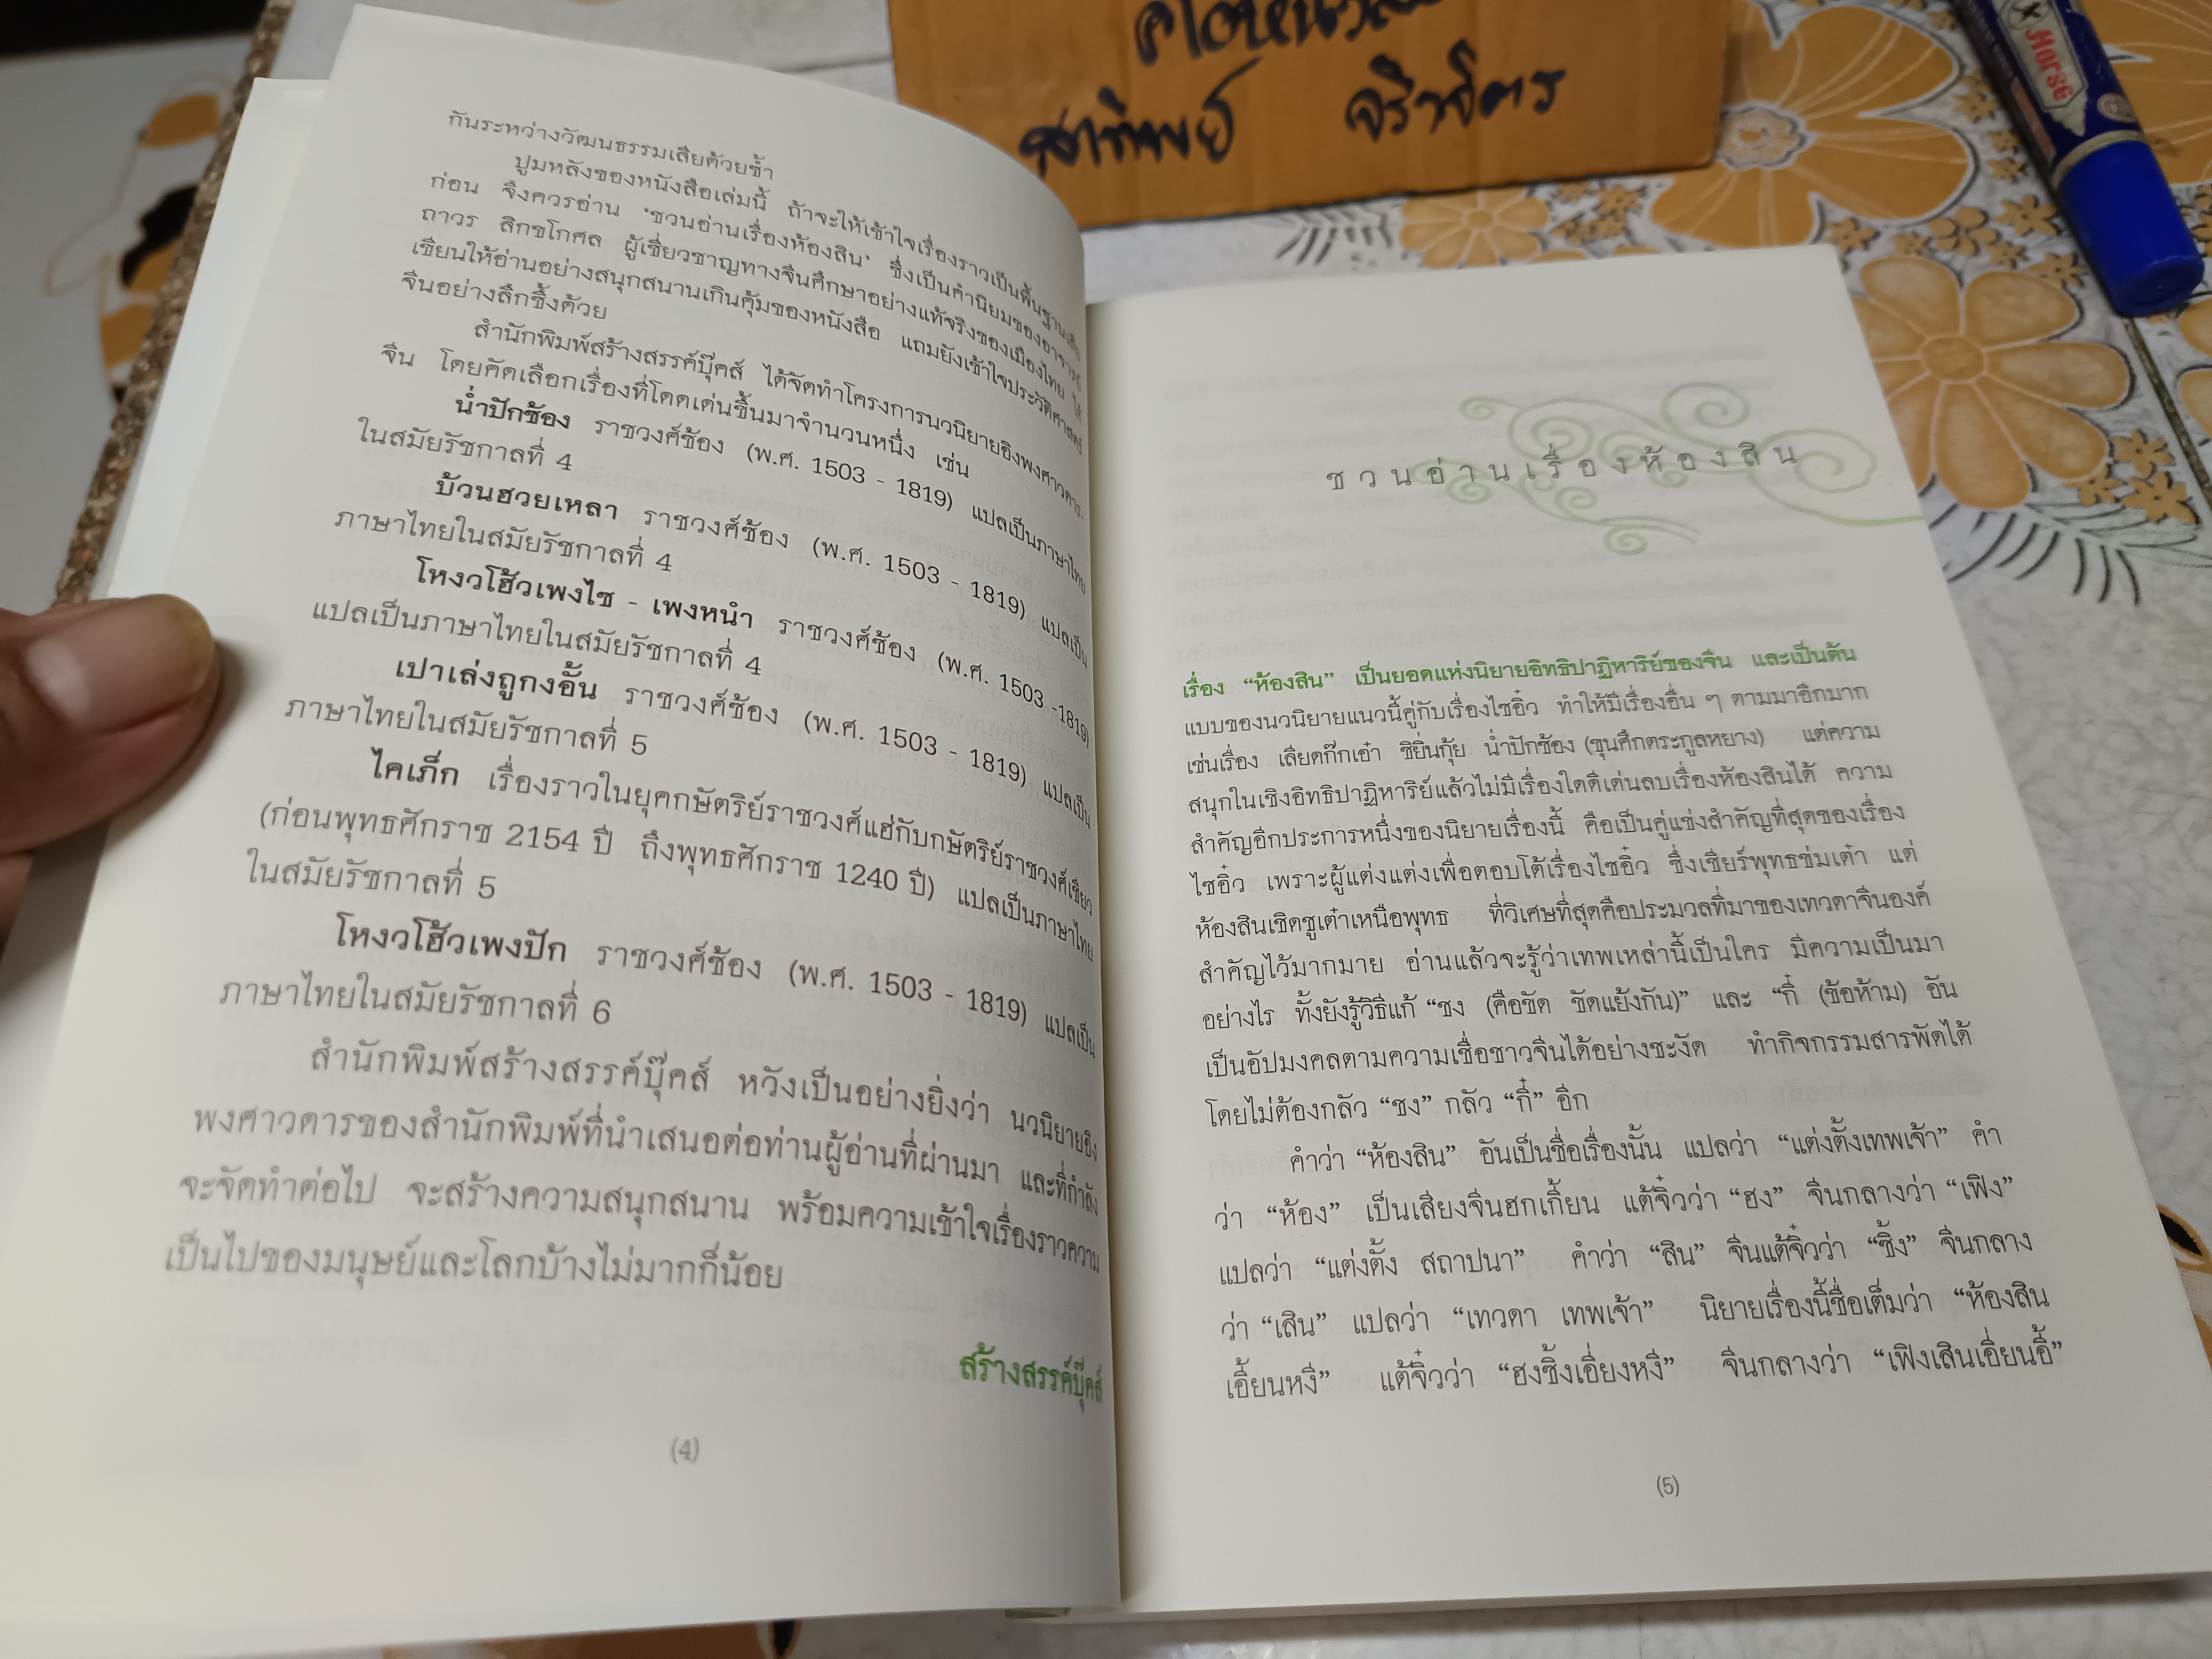 กันระหว่างวัฒนธรรมเสียด้วยซ้ำ
ปูมหลังของหนังสือเล่มนี้ ถ้าจะให้เข้าใจเรื่องราวเป็นพื้นฐานเสีย
ก่อน จึงควรอ่าน ‘ชวนอ่านเรื่องห้องสิน’ ซึ่งเป็นคำนิยมของอาจารย์
ถาวร สิกขโกศล ผู้เชี่ยวชาญทางจีนศึกษาอย่างแท้จริงของเมืองไทย ได้
เขียนให้อ่านอย่างสนุกสนานเกินคุ้มของหนังสือ แถมยังเข้าใจประวัติศาสตร์
จีนอย่างลึกซึ้งด้วย
สำนักพิมพ์สร้างสรรค์บุ๊คส์ ได้จัดทำโครงการนวนิยายอิงพงศาวดาร
จีน โดยคัดเลือกเรื่องที่โดดเด่นขึ้นมาจำนวนหนึ่ง เช่น
น่ำปักซ้อง ราชวงศ์ซ้อง (พ.ศ. 1503 - 1819) แปลเป็นภาษาไทย
ในสมัยรัชกาลที่ 4
บ้วนฮวยเหลา ราชวงศ์ซ้อง (พ.ศ. 1503 - 1819) แปลเป็น
ภาษาไทยในสมัยรัชกาลที่ 4
โหงวโฮ้วเพงไซ - เพงหนำ ราชวงศ์ซ้อง (พ.ศ. 1503 -1819)
แปลเป็นภาษาไทยในสมัยรัชกาลที่ 4
เปาเล่งถูกงอั้น ราชวงศ์ซ้อง (พ.ศ. 1503 - 1819) แปลเป็น
ภาษาไทยในสมัยรัชกาลที่ 5
ไคเภ็ก เรื่องราวในยุคกษัตริย์ราชวงศ์แฮ่กับกษัตริย์ราชวงศ์เซียว
(ก่อนพุทธศักราช 2154 ปี ถึงพุทธศักราช 1240 ปี) แปลเป็นภาษาไทย
ในสมัยรัชกาลที่ 5
โหงวโฮ้วเพงปัก ราชวงศ์ซ้อง (พ.ศ. 1503 - 1819) แปลเป็น
ภาษาไทยในสมัยรัชกาลที่ 6
สำนักพิมพ์สร้างสรรค์บุ๊คส์ หวังเป็นอย่างยิ่งว่า นวนิยายอิง
พงศาวดารของสำนักพิมพ์ที่นำเสนอต่อท่านผู้อ่านที่ผ่านมา และที่กำลัง
จะจัดทำต่อไป จะสร้างความสนุกสนาน พร้อมความเข้าใจเรื่องราวความ
เป็นไปของมนุษย์และโลกบ้างไม่มากก็น้อย
สร้างสรรค์บุ๊คส์
(4)
ชวนอ่านเรื่องห้องสิน
เรื่อง “ห้องสิน” เป็นยอดแห่งนิยายอิทธิปาฏิหาริย์ของจีน และเป็นต้น
แบบของนวนิยายแนวนี้คู่กับเรื่องไซอิ๋ว ทำให้มีเรื่องอื่น ๆ ตามมาอีกมาก
เช่นเรื่อง เลียดก๊กเอ๋า ซิยิ่นกุ้ย น่ำปักซ้อง (ขุนศึกตระกูลหยาง) แต่ความ
สนุกในเชิงอิทธิปาฏิหาริย์แล้วไม่มีเรื่องใดดีเด่นลบเรื่องห้องสินได้ ความ
สำคัญอีกประการหนึ่งของนิยายเรื่องนี้ คือเป็นคู่แข่งสำคัญที่สุดของเรื่อง
ไซอิ๋ว เพราะผู้แต่งแต่งเพื่อตอบโต้เรื่องไซอิ๋ว ซึ่งเชียร์พุทธข่มเต๋า แต่
ห้องสินเชิดชูเต๋าเหนือพุทธ ที่วิเศษที่สุดคือประมวลที่มาของเทวดาจีนองค์
สำคัญไว้มากมาย อ่านแล้วจะรู้ว่าเทพเหล่านี้เป็นใคร มีความเป็นมา
อย่างไร ทั้งยังรู้วิธีแก้ “ชง (คือขัด ขัดแย้งกัน)” และ “กี๋ (ข้อห้าม) อัน
เป็นอัปมงคลตามความเชื่อชาวจีนได้อย่างชะงัด ทำกิจกรรมสารพัดได้
โดยไม่ต้องกลัว “ชง” กลัว “กี๋” อีก
คำว่า “ห้องสิน” อันเป็นชื่อเรื่องนั้น แปลว่า “แต่งตั้งเทพเจ้า” คำ
ว่า “ห้อง” เป็นเสียงจีนฮกเกี้ยน แต้จิ๋วว่า “ฮง” จีนกลางว่า “เฟิง”
แปลว่า “แต่งตั้ง สถาปนา” คำว่า “สิน” จีนแต้จิ๋วว่า “ซิ้ง” จีนกลาง
ว่า “เสิน” แปลว่า “เทวดา เทพเจ้า” นิยายเรื่องนี้ชื่อเต็มว่า “ห้องสิน
เอี้ยนหงี” แต้จิ๋วว่า “ฮงซิ้งเอี่ยงหงี” จีนกลางว่า “เฟิงเสินเอี่ยนอี้”
(5)
Horse